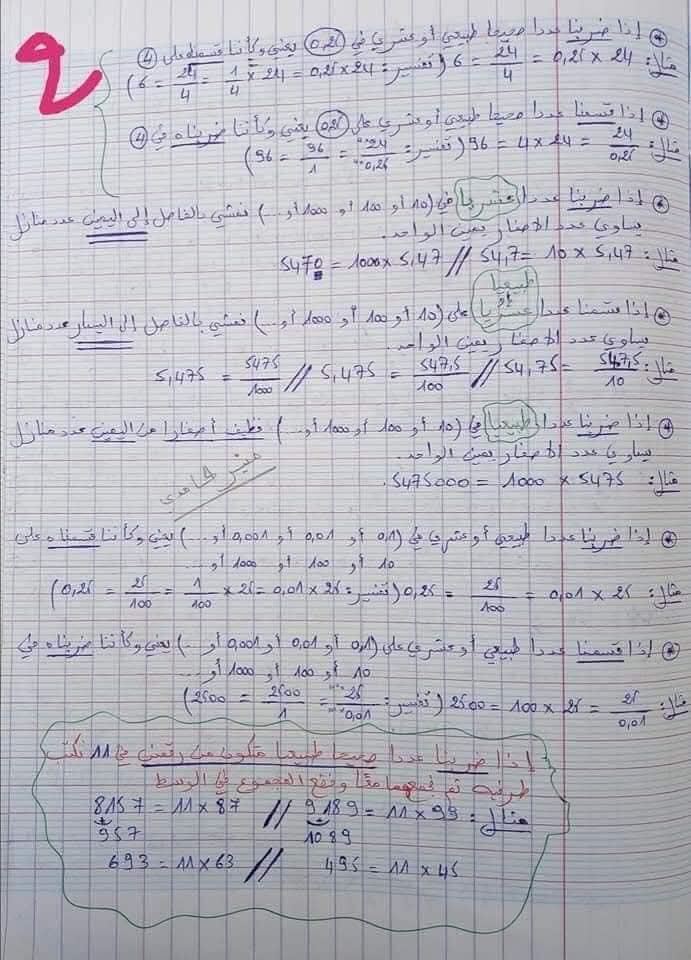 2
* إذا ضربنا عددا صحيحا طبيعي أو عشري في 0,25 يعني وكأننا قسمناه على 4
مثال: 24 × 0,25 = 24/4 = 6 (تفسير: 24×0,25 = 24 × 1/4 = 24/4 = 6)
* إذا قسمنا عددا صحيحا طبيعي أو عشري على 0,25 يعني وكأننا ضربناه في 4
مثال: 24/0,25 = 24 × 4 = 96 (تفسير: 24/0,25 = 96/1 = 96)
* إذا ضربنا عددا عشريا في (10 أو 100 أو 1000 أو...) نمشي بالفاصل إلى اليمين عدد منازل
يساوي عدد الأصفار يمين الواحد.
مثال: 5,47 × 10 = 54,7 // 5,47 × 1000 = 5470
طبيعيا
أو
* إذا قسمنا عددا عشريا على (10 أو 100 أو 1000 أو...) نمشي بالفاصل إلى اليسار عدد منازل
يساوي عدد الأصفار يمين الواحد.
مثال: 547,5/10 = 54,75 // 547,5/100 = 5,475 // 5475/1000 = 5,475
* إذا ضربنا عددا طبيعيا في (10 أو 100 أو 1000 أو...) نضيف أصفارا من اليمين عدد منازل
يساوي عدد الأصفار يمين الواحد.
مثال: 5475 × 1000 = 5475000.
* إذا ضربنا عددا طبيعي أو عشري في (0,1 أو 0,01 أو 0,001 أو...) يعني وكأننا قسمناه على
10 أو 100 أو 1000 أو...
مثال: 25 × 0,01 = 25/100 = 0,25 (تفسير: 25 × 0,01 = 25 × 1/100 = 25/100 = 0,25)
* إذا قسمنا عددا طبيعي أو عشري على (0,1 أو 0,01 أو 0,001 أو...) يعني وكأننا ضربناه في
10 أو 100 أو 1000 أو...
مثال: 25/0,01 = 25 × 100 = 2500 (تفسير: 25/0,01 = 2500/1 = 2500)
إذا ضربنا عددا صحيحا طبيعيا متكون من رقمين في 11 نكتب
طرفيه ثم نجمعهما معًا ونضع المجموع في الوسط
مثال: 99 × 11 = 9189 // 87 × 11 = 8157
1089 957
45 × 11 = 495 // 63 × 11 = 693